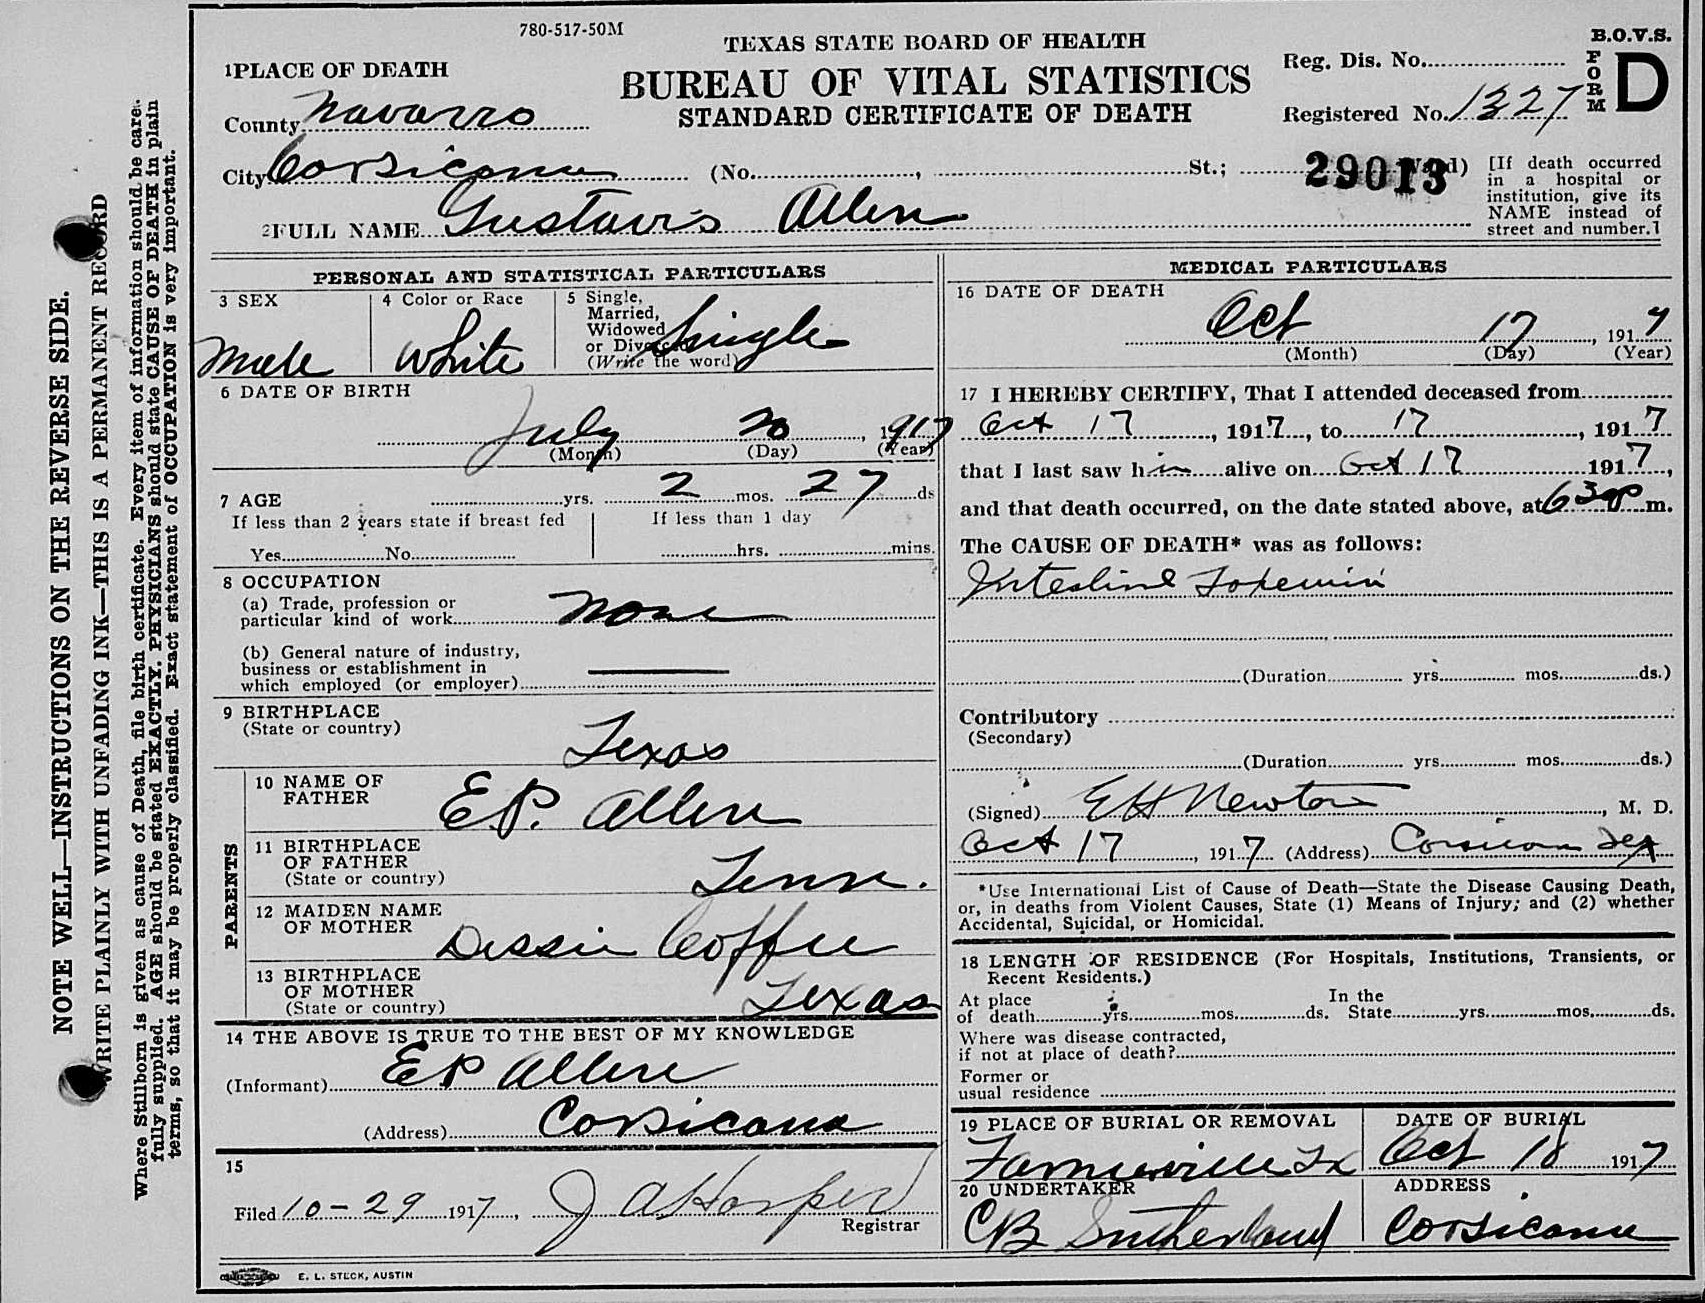 780-517-50M
TEXAS STATE BOARD OF HEALTH
BUREAU OF VITAL STATISTICS
STANDARD CERTIFICATE OF DEATH
B.O.V.S.
FORM D
Reg. Dis. No.
Registered No. 1327
1 PLACE OF DEATH
County Navarro
City Corsicana (No. , St.; Ward)
29013
[If death occurred
in a hospital or
institution, give its
NAME instead of
street and number.]
2 FULL NAME Gustavis Allen
PERSONAL AND STATISTICAL PARTICULARS
3 SEX
Male
4 Color or Race
White
5 Single,
Married,
Widowed
or Divorced
(Write the word)
Single
6 DATE OF BIRTH
July 20, 1917
(Month) (Day) (Year)
7 AGE yrs. 2 mos. 27 ds
If less than 2 years state if breast fed
Yes No
If less than 1 day
hrs. mins.
8 OCCUPATION
(a) Trade, profession or
particular kind of work None
(b) General nature of industry,
business or establishment in
which employed (or employer)
9 BIRTHPLACE
(State or country)
Texas
PARENTS
10 NAME OF
FATHER
E.P. Allen
11 BIRTHPLACE
OF FATHER
(State or country)
Tenn.
12 MAIDEN NAME
OF MOTHER
Dessie Coffee
13 BIRTHPLACE
OF MOTHER
(State or country)
Texas
14 THE ABOVE IS TRUE TO THE BEST OF MY KNOWLEDGE
(Informant) E P Allen
(Address) Corsicana
15
Filed 10-29 1917, J A Harper
Registrar
E. L. STECK, AUSTIN
MEDICAL PARTICULARS
16 DATE OF DEATH
Oct 17, 1917
(Month) (Day) (Year)
17 I HEREBY CERTIFY, That I attended deceased from
Oct 17, 1917, to 17, 1917
that I last saw him alive on Oct 17 1917,
and that death occurred, on the date stated above, at 630 P m.
The CAUSE OF DEATH* was as follows:
(Duration yrs. mos. ds.)
Contributory
(Secondary)
(Duration yrs. mos. ds.)
(Signed) E H Newton, M. D.
Oct 17, 1917 (Address) Corsicana Tex
*Use International List of Cause of Death—State the Disease Causing Death,
or, in deaths from Violent Causes, State (1) Means of Injury; and (2) whether
Accidental, Suicidal, or Homicidal.
18 LENGTH OF RESIDENCE (For Hospitals, Institutions, Transients, or
Recent Residents.)
At place
of death yrs. mos. ds.
In the
State yrs. mos. ds.
Where was disease contracted,
if not at place of death?
Former or
usual residence
19 PLACE OF BURIAL OR REMOVAL
Tx
DATE OF BURIAL
Oct 18 1917
20 UNDERTAKER
CB Sutherland
ADDRESS
Corsicana
NOTE WELL—INSTRUCTIONS ON THE REVERSE SIDE.
WRITE PLAINLY WITH UNFADING INK—THIS IS A PERMANENT RECORD
Where Stillborn is given as cause of Death, file birth certificate. Every item of information should be care-
fully supplied. AGE should be stated EXACTLY. PHYSICIANS should state CAUSE OF DEATH in plain
terms, so that it may be properly classified. Exact statement of OCCUPATION is very important.